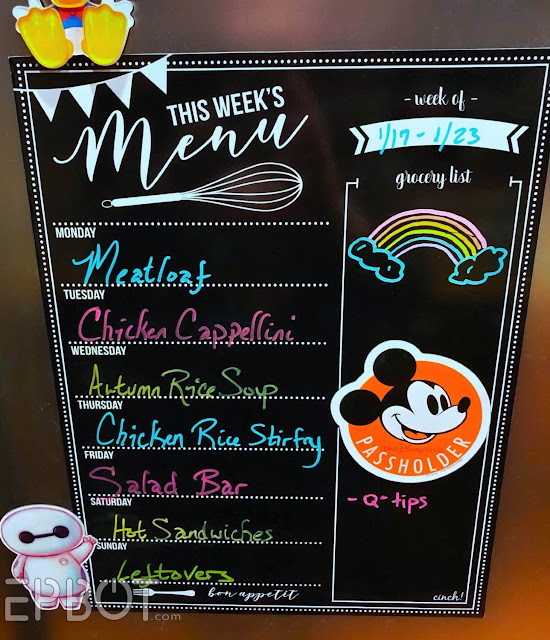 THIS WEEK'S
Menu
- week of -
1/17 - 1/23
grocery list
MONDAY
Meatloaf
TUESDAY
Chicken Cappellini
WEDNESDAY
Autumn Rice Soup
THURSDAY
Chicken Rice Stirfry
FRIDAY
Salad Bar
SATURDAY
Hot Sandwiches
SUNDAY
Leftovers
bon appetit
PASSHOLDER
- Q-tips
cinch!
EPBOT.com